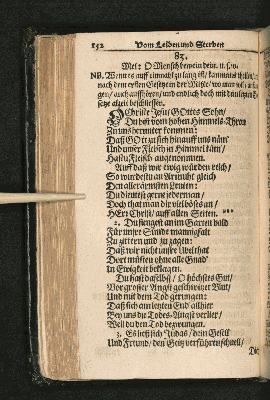 152 Vom Leiden und Sterben
83.
Mel: O Mensch bewein dein, u. s. w.
NB. Wenn es auff einmahl zu lang ist, kan man's theilen,
nach dem ersten Gesetzen der Mitte, wo man
gen, auch auffhören, und endlich doch mit dem letzten
setze allzeit beschliessen.
O Christe Jesu GOttes Sohn,
Du bist vom hohen Himmels-Thron
Zu uns herunter kommen:
Daß GOtt zu sich hinauff uns nähm'
Und unser Fleisch in Himmel käm,
Hastu Fleisch angenommen.
Auff daß wir ewig würden reich,
So wurdestu an Armuth gleich
Den allerärmsten Leuten:
Du dientest gerne jederman,
Doch that man dir viel böses an,
HErr Christ, auff allen Seiten.
2. Du fiengest an im Garten bald
Für unser Sünde mannigfalt
Zu zittern und zu zagen:
Daß wir nicht ausser
Dort müsten ohne alle Gnad'
In Ewigkeit beklagen.
Du hast daselbst, O höchstes Gut,
Vor grosser Angst geschwitzet Blut,
Und mit dem Tod gerungen:
Daß sich an letzten End allhier
Bey uns die Todes-Angst verlier,
Weil du den Tod bezwungen.
3. Es ließ sich Judas, dein Gesell
Und Freund, den Geitz verführen schnell,
Die